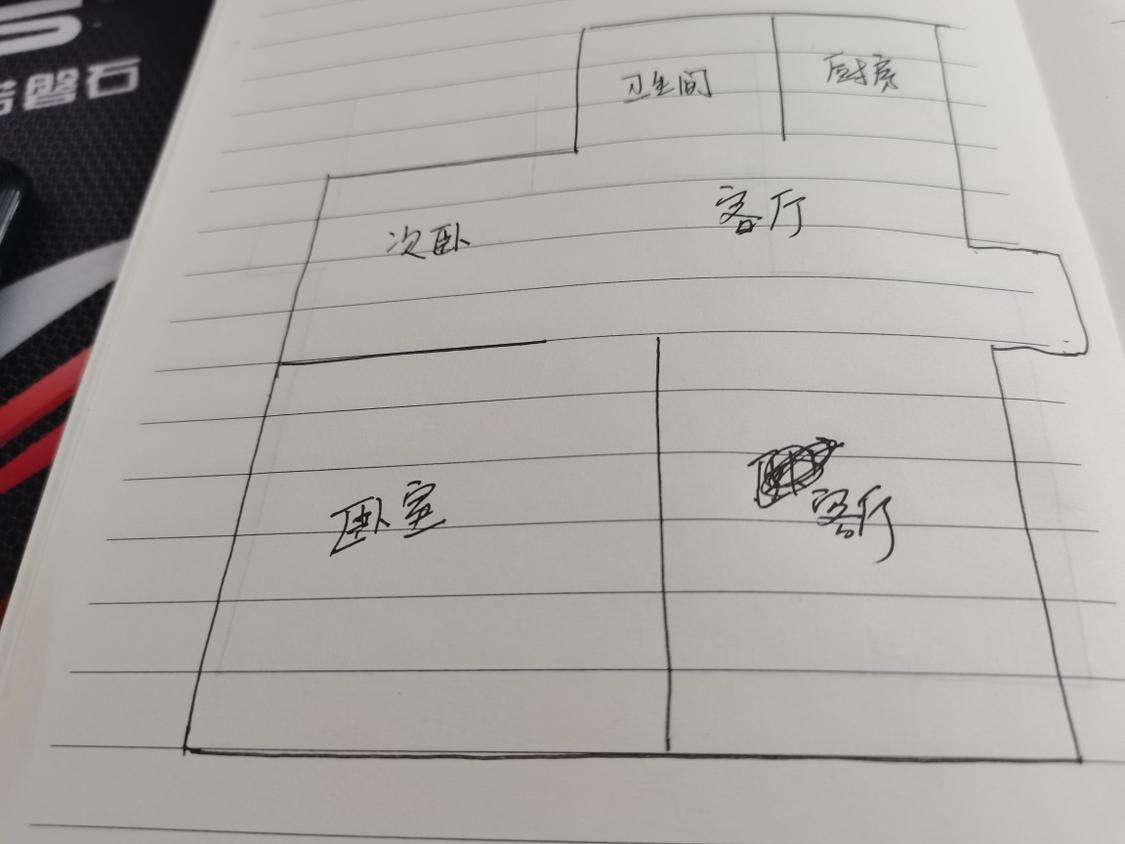 磐石
卫生间
厨房
次卧
客厅
卧室
客厅